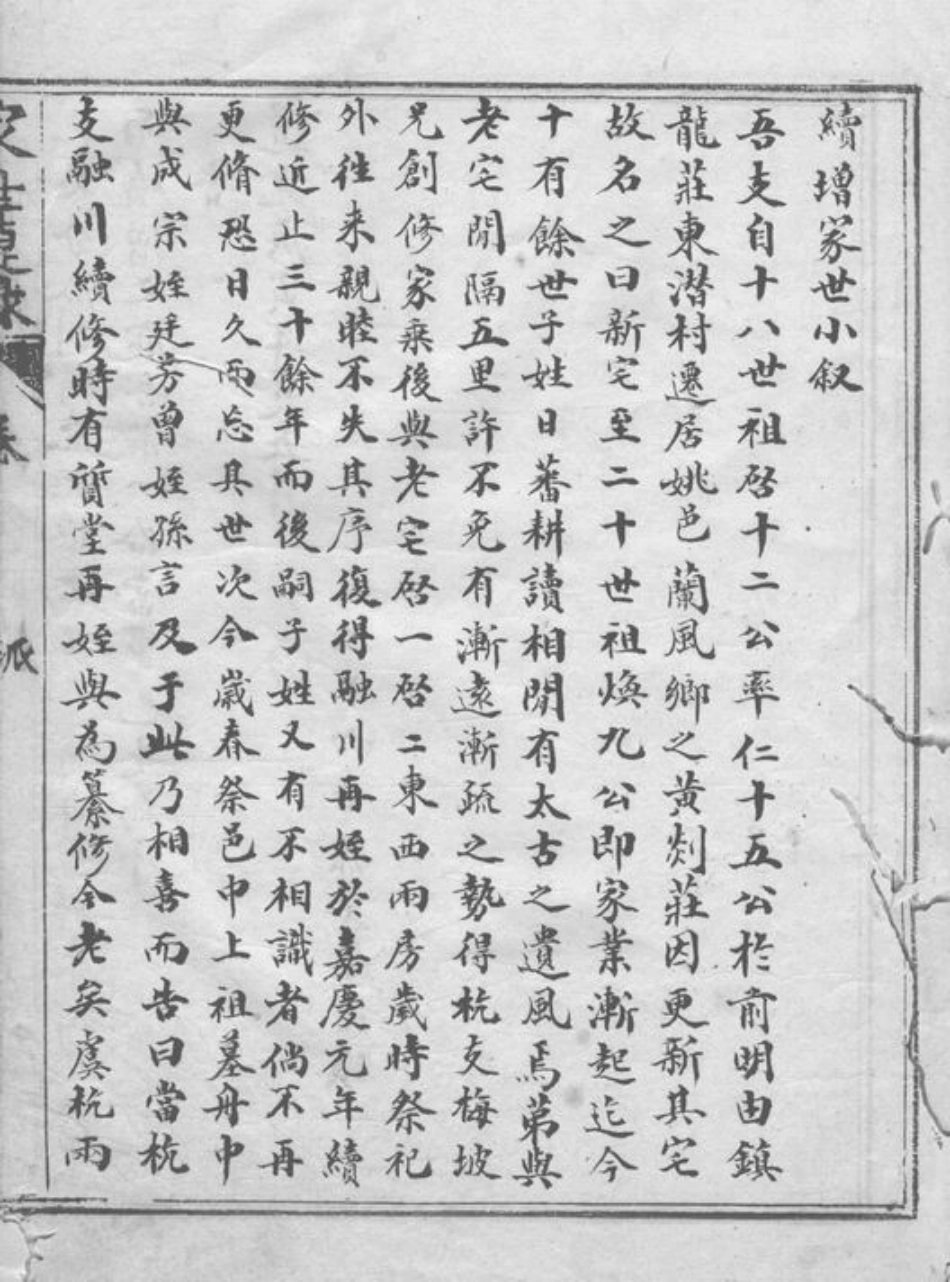 續增家世小叙
吾支自十八世祖啓十二公率仁十五公於前明由鎮
龍莊東潜村遷居姚邑蘭風鄉之黄剡莊因更新其宅
故名之曰新宅至二十世祖煥九公即家業漸起迄今
十有餘世子姓日蕃耕讀相閒有太古之遺風焉第與
老宅閒隔五里許不免有漸遠漸疏之勢得杭支梅坡
兄創修家乘後與老宅啓一啓二東西兩房歲時祭祀
外徃来親睦不失其序復得融川再姪於嘉慶元年續
修近止三十餘年而後嗣子姓又有不相識者倘不再
更脩恐日久而忘其世次今歲春祭邑中上祖墓舟中
與成宗姪廷芳曾姪孫言及于此乃相喜而告曰當杭
支融川續修時有質堂再姪與為纂修今老矣虞杭兩
卷
派